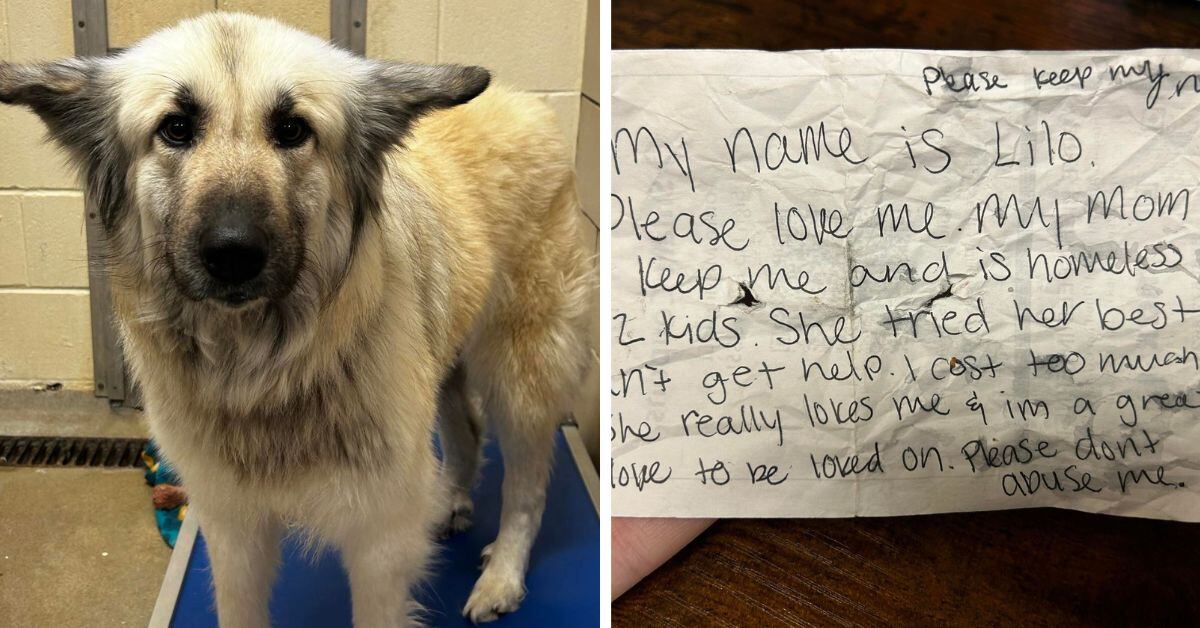 Please keep my
My name is Lilo.
Please love me. My Mom
keep me and is homeless
2 kids. She tried her best
n't get help. I cost too much
She really loves me & im a grea
love to be loved on. Please don't
abuse me.